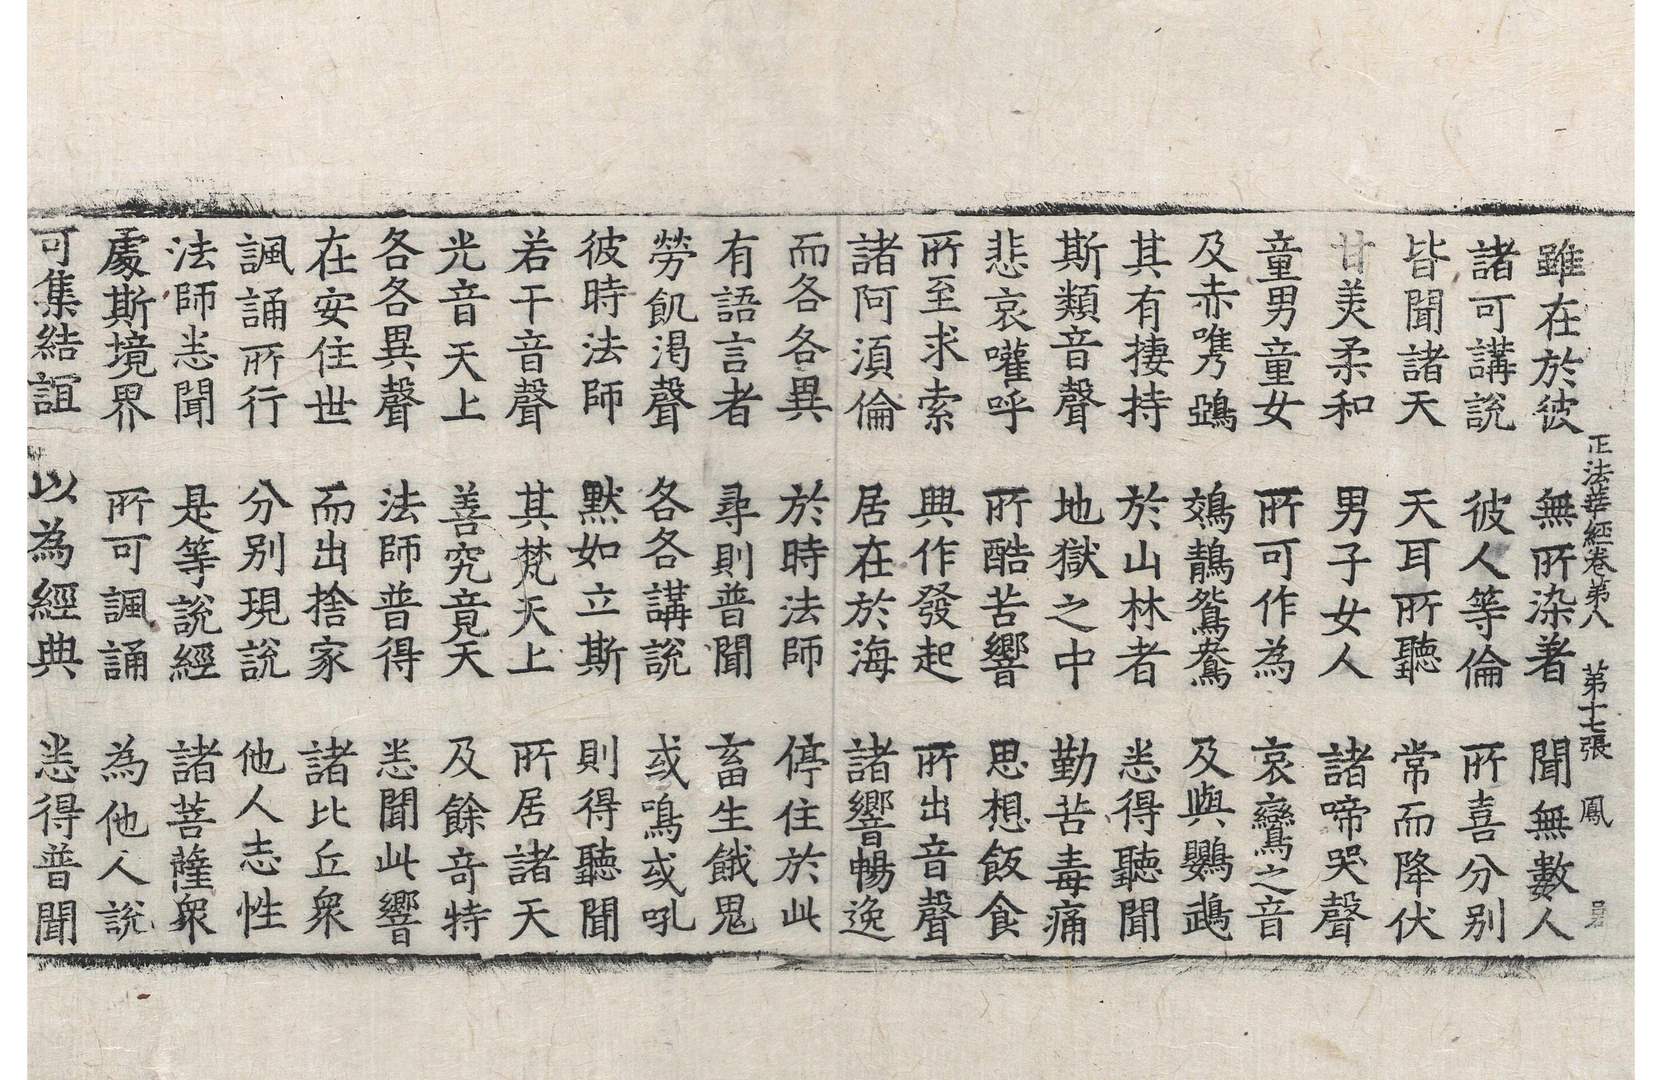 正法華經卷第八　第十七張　鳳
雖在於彼　無所染著　聞無數人
諸可講說　彼人等倫　所喜分別
皆聞諸天　天耳所聽　常而降伏
甘美柔和　男子女人　諸啼哭聲
童男童女　所可作為　哀鸞之音
及赤嘴鵶　鵁鶄鴛鴦　及與鸚鵡
其有捿持　於山林者　悉得聽聞
斯類音聲　地獄之中　勤苦毒痛
悲哀嚾呼　所酷苦響　思想飯食
所至求索　興作發起　所出音聲
諸阿須倫　居在於海　諸響暢逸
而各各異　於時法師　停住於此
有語言者　尋則普聞　畜生餓鬼
勞飢渴聲　各各講說　或鳴或吼
彼時法師　默如立斯　則得聽聞
若干音聲　其梵天上　所居諸天
光音天上　善究竟天　及餘奇特
各各異聲　法師普得　悉聞此響
在安住世　而出捨家　諸比丘衆
諷誦所行　分別現說　他人志性
法師悉聞　是等說經　諸菩薩衆
處斯境界　所可諷誦　為他人說
可集結誼　以為經典　悉得普聞